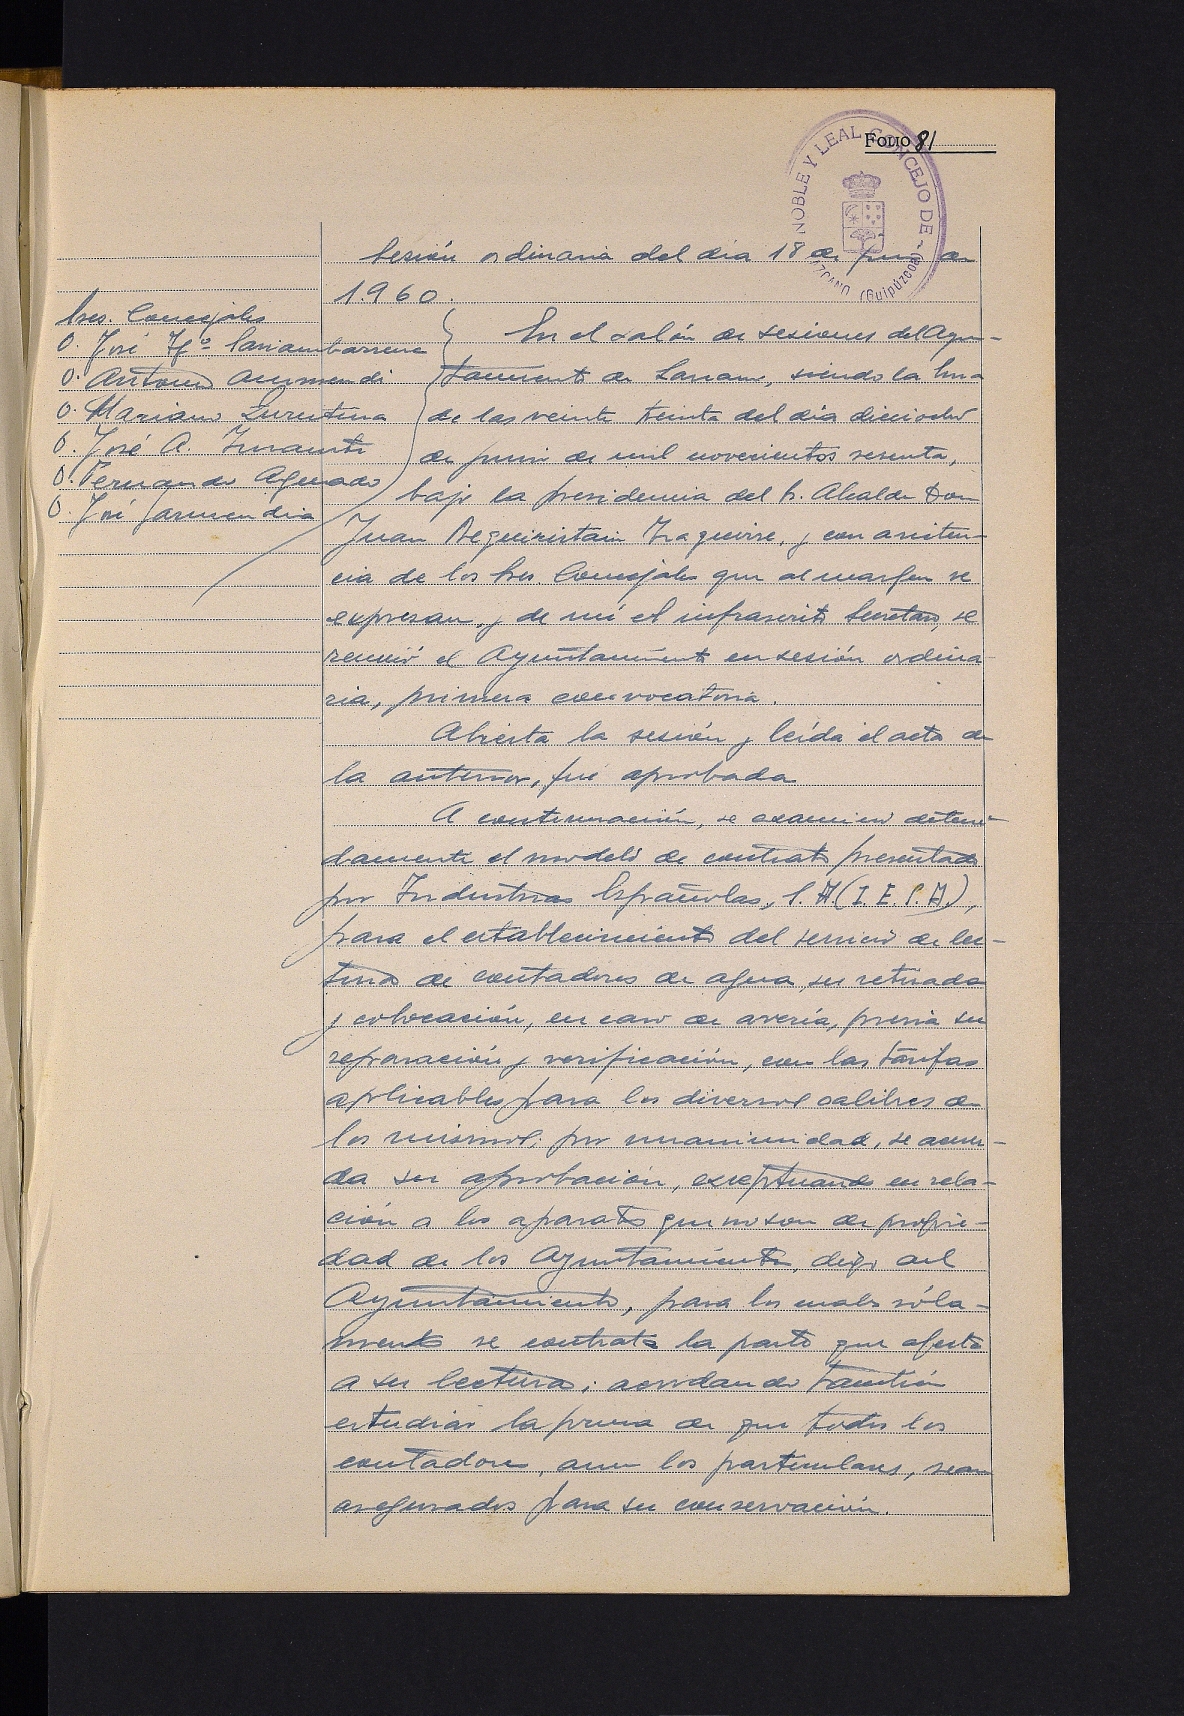 FOLIO 81
NOBLE Y LEAL CONCEJO DE
(Guipúzcoa)
Sesión ordinaria del dia 18 de junio de
1.960.
Sres. Concejales
D. José Mª
D. Antonio
D. Mariano
D. José A.
D. Fernando Aguado
D. José Garmendia
En el salón de sesiones del Ayun-
tamiento de siendo la hora
de las veinte treinta del dia dieciocho
de junio de mil novecientos sesenta,
bajo la presidencia del Sr. Alcalde Don
Juan y con asisten-
cia de los Sres. Concejales que al margen se
expresan, y de mí el infrascrito Secretario, se
reunió el Ayuntamiento en sesión ordina-
ria, primera convocatoria.
Abierta la sesión y leída el acta de
la anterior, fué aprobada
A continuación, se examinó deteni-
damente el modelo de contrato presentado
por Industrias Españolas, S.A (I.E.S.A.),
para el establecimiento del servicio de lec-
tura de contadores de agua, su retirada
y colocación, en caso de avería, previa su
reparación y verificación, con las tarifas
aplicables para los diversos calibres de
los mismos; por unanimidad, se acuer-
da su aprobación, exceptuando en rela-
ción a los aparatos que no son de propie-
dad de los Ayuntamientos, digo del
Ayuntamiento, para los cuales sóla-
mente se contrata la parte que afecta
a su lectura; acordando también
estudiar la forma de que todos los
contadores, aun los particulares, sean
asegurados para su conservación.